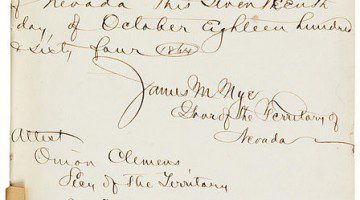 of Nevada this Seventeenth
day of October Eighteen hundred
& Sixty four (1864)
James W Nye
Gov of the Territory of
Nevada
Attest
Orion Clemens
Secy of the Territory